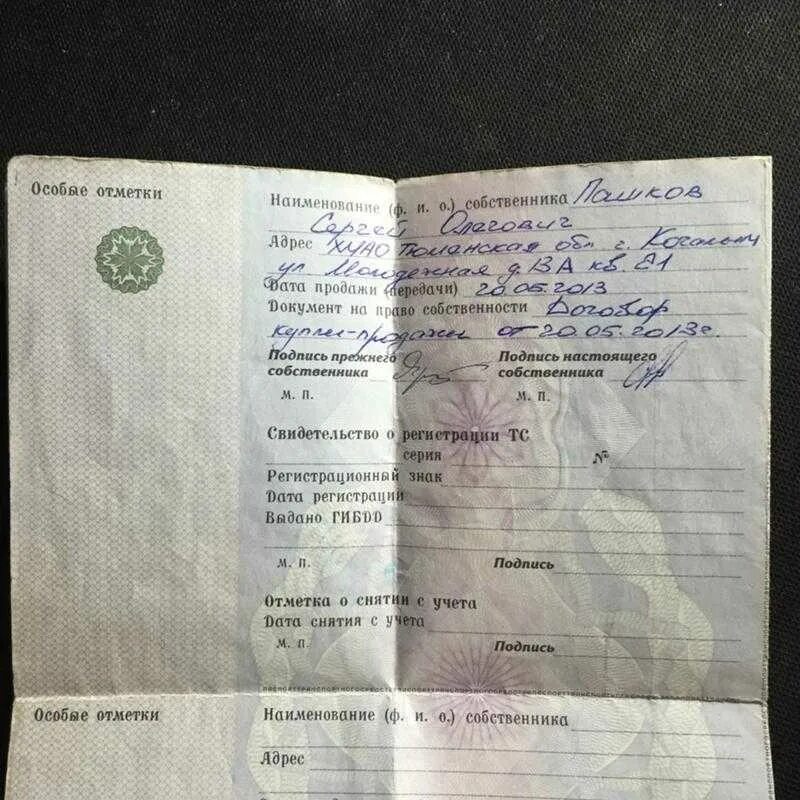 Особые отметки
Наименование (ф. и. о.) собственника Пашков
Сергей Олегович
Адрес ХМАО Тюменская обл. г. Когалым
ул. Молодежная д. 13А кв. 21
Дата продажи (передачи) 20.05.2013
Документ на право собственности Договор
купли-продажи от 20.05.2013г.
Подпись прежнего собственника
Подпись настоящего собственника
М. П.
М. П.
Свидетельство о регистрации ТС
серия №
Регистрационный знак
Дата регистрации
Выдано ГИБДД
М. П.
Подпись
Отметка о снятии с учета
Дата снятия с учета
М. П.
Подпись
Особые отметки
Наименование (ф. и. о.) собственника
Адрес